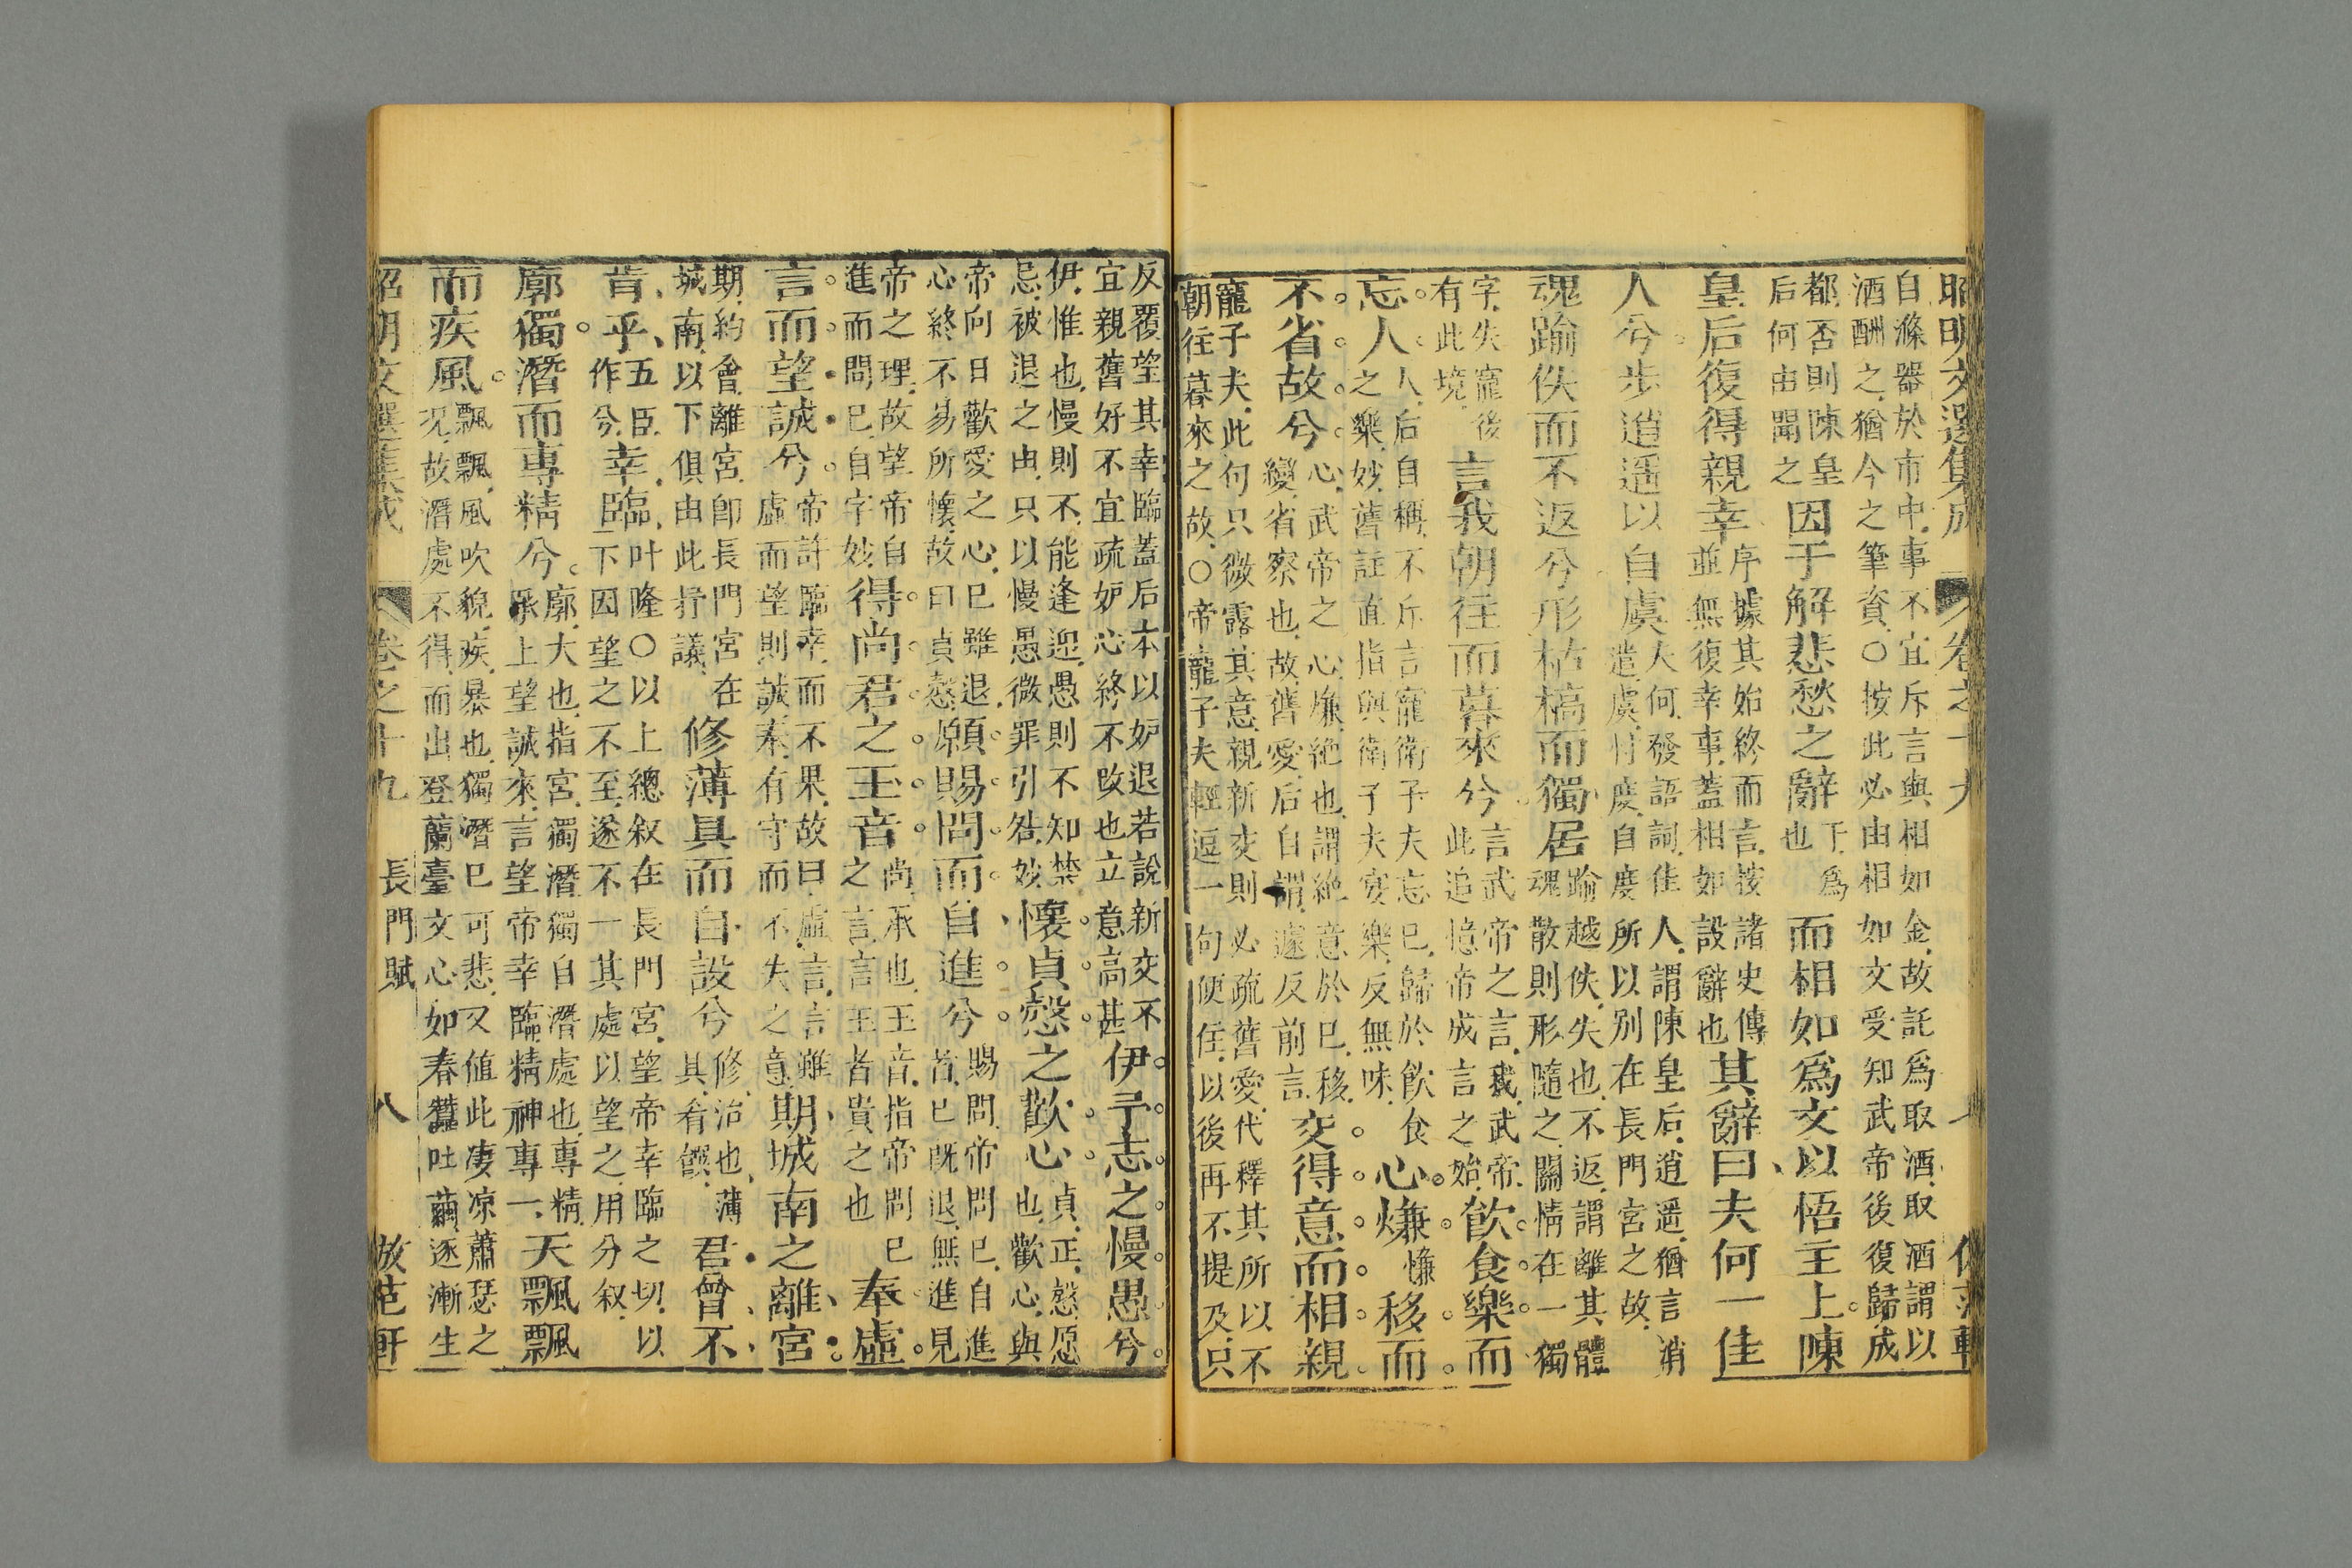 昭明文選集成 卷之十九 七 仿范軒
自滌器於市中事不宜斥言與相如金故託為取酒取酒謂以
酒酬之猶今之筆資○按此必由相如文受知武帝後復歸成
都否則陳皇后何由聞之因于解悲愁之辭于為也而相如為文以悟主上陳
皇后復得親幸序據其始終而言按諸史傳並無復幸事蓋相如設辭也其辭曰夫何一佳
人兮步逍遙以自虞夫何發語詞佳人謂陳皇后逍遙猶言消遣虞忖度自度所以別在長門宮之故
魂踰佚而不返兮形枯槁而獨居踰越佚失也不返謂離其體魂散則形隨之關情在一獨
字失寵後有此境言我朝往而暮來兮言武帝之言我武帝此追憶帝成言之始飲食樂而
忘人人后自稱不斥言寵衛子夫忘已歸於飲食之樂妙舊註直指與衛子夫宴樂反無味心慊慊移而
不省故兮心武帝之心慊絶也謂絶意於已移變省察也故舊愛后自謂遽反前言交得意而相親
寵子夫此句只微露其意親新交則必疏舊愛代釋其所以不
朝往暮來之故○帝寵子夫輕逗一句便住以後再不提及只
反覆望其幸臨蓋后本以妒退若說新交不宜親舊好不宜疏妒心終不改也立意高甚伊予志之慢愚兮
伊惟也慢則不能逢迎愚則不知禁忌被退之由只以慢愚微罪引咎妙懷貞慤之歡心貞正慤愿也歡心與
帝向日歡愛之心已雖退心終不易所懷故曰貞慤願賜問而自進兮賜問帝問已自進者已既退無進見
帝之理故望帝自進而問已自字妙得尚君之玉音尚承也玉音指帝問已之言言玉者貴之也奉虛
言而望誠兮帝許臨幸而不果故曰虛言言雖虛而望則誠奉有守而不失之意期城南之離宮
期約會離宮卽長門宮在城南以下俱由此抒議修薄具而自設兮修治也薄具肴饌君曾不
肯乎五臣作兮幸臨叶隆○以上總叙在長門宮望帝幸臨之切以下因望之不至遂不一其處以望之用分叙
廓獨潛而專精兮廓大也指宮獨潛獨自潛處也專精承上望誠來言望帝幸臨精神專一天飄飄
而疾風飄飄風吹貌疾暴也獨潛已可悲又值此凄凉蕭瑟之况故潛處不得而出登蘭臺文心如春蠶吐繭逐漸生
昭明文選集成 卷之十九 長門賦 八 放范軒